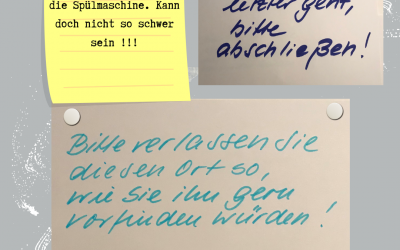 die Spülmaschine. Kann
doch nicht so schwer
sein !!!
letzter geht,
bitte
abschließen!
Bitte verlassen Sie
diesen Ort so,
wie Sie ihn gern
vorfinden würden!